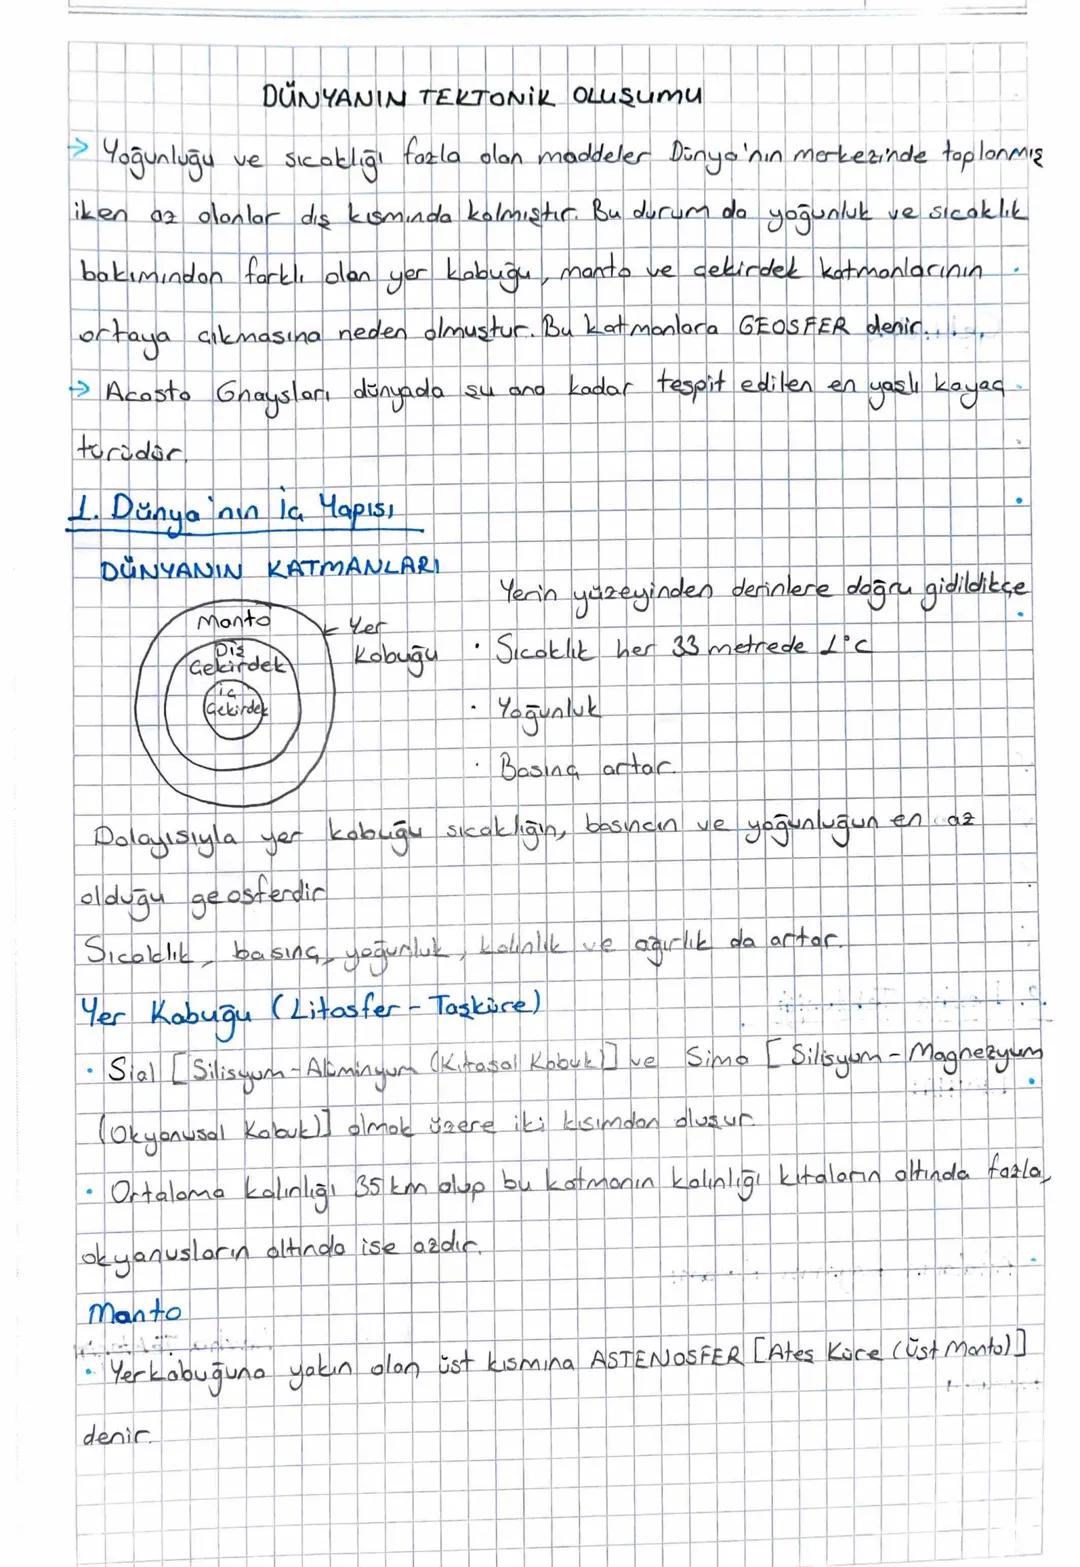 DÜNYANIN TEKTONİK OLUŞUMU
→ Yoğunluğu ve sıcaklığı fazla olan maddeler Dünya'nın merkezinde toplanmış
iken az olanlar dış kısmında kalmıştır. Bu durum da yoğunluk ve sıcaklık
bakımından farklı olan yer kabuğu, manto ve çekirdek katmanlarının
ortaya çıkmasına neden olmuştur. Bu katmanlara GEOSFER denir.
→ Acasta Gnaysları dünyada şu ana kadar tespit edilen en yaşlı kayaç
türüdür.
1. Dünya'nın İç Yapısı
DÜNYANIN KATMANLARI
Yerin yüzeyinden derinlere doğru gidildikçe
Manto
Yer
Kabuğu
Dış
Çekirdek
İç
Çekirdek
• Sıcaklık her 33 metrede 1°C
• Yoğunluk
• Basınç artar.
Dolayısıyla yer kabuğu sıcaklığın, basıncın ve yoğunluğun en az
olduğu geosferdir
Sıcaklık, basınç, yoğunluk, kalınlık ve ağırlık da artar.
Yer Kabuğu (Litosfer - Taşküre)
• Sial [Silisyum - Alüminyum (Kıtasal Kabuk)] ve Sima [Silisyum - Magnezyum
(Okyanusal Kabuk)] olmak üzere iki kısımdan oluşur.
• Ortalama kalınlığı 35 km olup bu katmanın kalınlığı kıtaların altında fazla,
okyanusların altında ise azdır.
Manto
• Yerkabuğuna yakın olan üst kısmına ASTENOSFER [Ateş Küre (Üst Manto)]
denir.